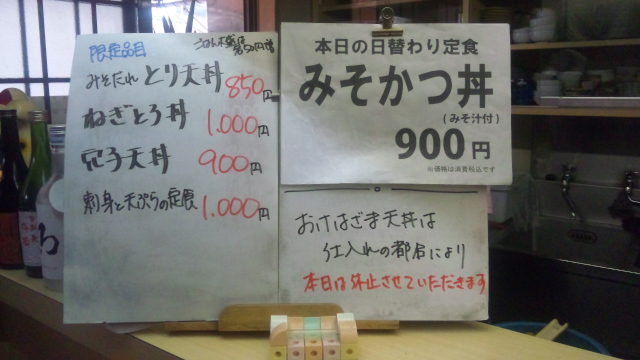 限定品目
ごはん大盛は
みそだれ とり天丼 850円
ねぎとろ丼 1.000円
穴子天丼 900円
刺身と天ぷらの定食 1.000円
本日の日替わり定食
みそかつ丼
(みそ汁付)
900円
※価格は消費税込です
おけはざま天丼は
仕入れの都合により
本日は休止させていただきます